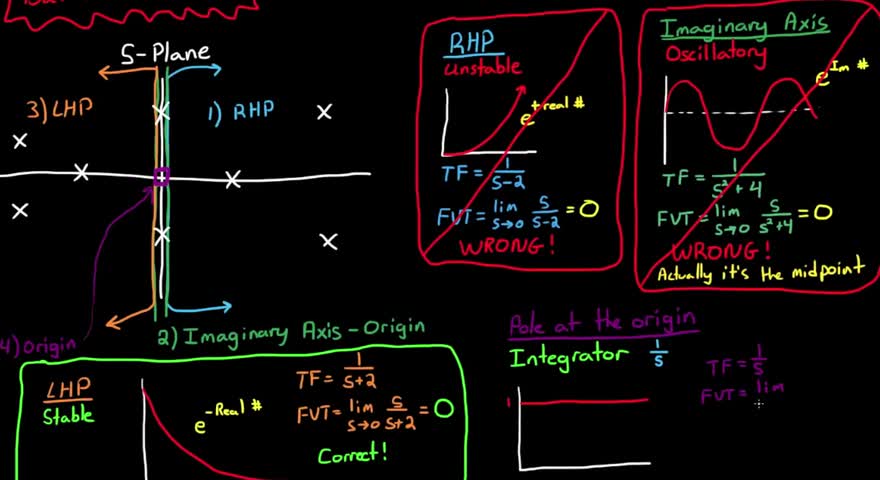 S-Plane
3) LHP
1) RHP
4) Origin
2) Imaginary Axis - Origin
RHP
Unstable
e^+real #
TF = 1/(s-2)
FVT = lim s→0 s/(s-2) = 0
WRONG!
Imaginary Axis
Oscillatory
e^Im #
TF = 1/(s²+4)
FVT = lim s→0 s/(s²+4) = 0
WRONG!
Actually it's the midpoint
LHP
Stable
e^-Real #
TF = 1/(s+2)
FVT = lim s→0 s/(s+2) = 0
Correct!
Pole at the origin
Integrator 1/s
1
TF = 1/s
FVT = lim